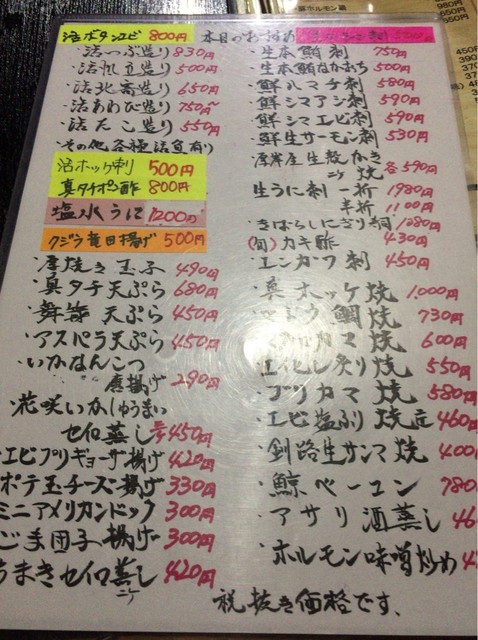 活ボタンエビ 800円
本日のおすすめ
・活つぶ造り 830円
・活帆立造り 500円
・活北寄造り 650円
・活あわび造り 750円〜
・活たこ造り 550円
・その他各種活魚有り
活ホッケ刺 500円
真タチポン酢 800円
塩水うに 1200円
クジラ竜田揚げ 500円
・厚焼き玉子 490円
・真タチ天ぷら 680円
・舞茸天ぷら 450円
・アスパラ天ぷら 450円
・いかなんこつ
唐揚げ 290円
・花咲いかしゅうまい
セイロ蒸し 450円
エビプリギョーザ揚げ 420円
ポテ玉チーズ揚げ 330円
ミニアメリカンドック 300円
ごま団子揚げ 300円
うまきセイロ蒸し 420円
・生本鮪刺 750円
・生本鮪なかおち 500円
・鮮ハマチ刺 580円
・鮮シマアジ刺 590円
・鮮シマエビ刺 590円
・鮮生サーモン刺 530円
・厚岸産生殻かき
焼 各590円
生うに刺 一折 1980円
半折 1100円
(旬)カキ酢 430円
・エンガワ刺 450円
・真ホッケ焼 1,000円
鯛焼 730円
焼 600円
炙り焼 550円
・ブリカマ焼 580円
・エビ塩ふり焼 460円
・釧路生サンマ焼 400円
・鯨ベーコン 780
・アサリ酒蒸し 46
・ホルモン味噌炒め 4
税抜き価格です、
980円
650円